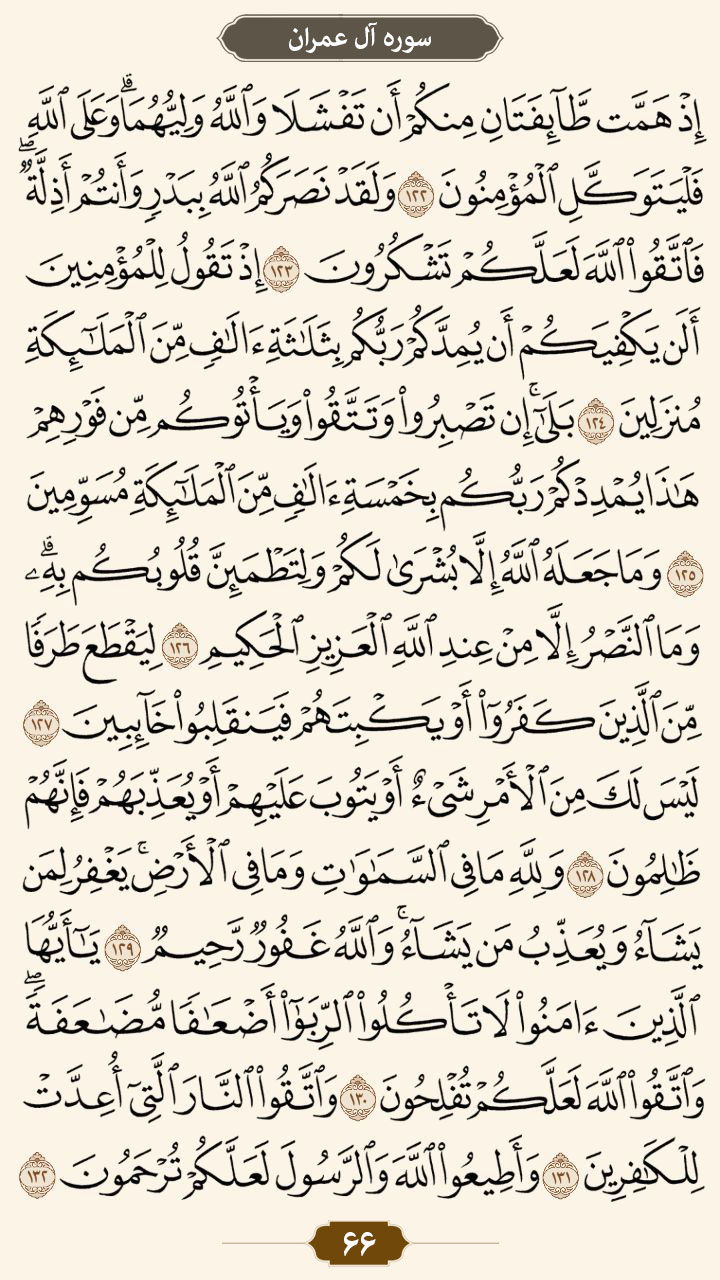 سوره آل عمران
إِذْ هَمَّت طَّآئِفَتَانِ مِنكُمْ أَن تَفْشَلَا وَٱللَّهُ وَلِيُّهُمَا ۗ وَعَلَى ٱللَّهِ
فَلْيَتَوَكَّلِ ٱلْمُؤْمِنُونَ ١٢٢ وَلَقَدْ نَصَرَكُمُ ٱللَّهُ بِبَدْرٍ وَأَنتُمْ أَذِلَّةٌ ۖ
فَٱتَّقُوا۟ ٱللَّهَ لَعَلَّكُمْ تَشْكُرُونَ ١٢٣ إِذْ تَقُولُ لِلْمُؤْمِنِينَ
أَلَن يَكْفِيَكُمْ أَن يُمِدَّكُمْ رَبُّكُم بِثَلَٰثَةِ ءَالَٰفٍ مِّنَ ٱلْمَلَٰٓئِكَةِ
مُنزَلِينَ ١٢٤ بَلَىٰٓ ۚ إِن تَصْبِرُوا۟ وَتَتَّقُوا۟ وَيَأْتُوكُم مِّن فَوْرِهِمْ
هَٰذَا يُمْدِدْكُمْ رَبُّكُم بِخَمْسَةِ ءَالَٰفٍ مِّنَ ٱلْمَلَٰٓئِكَةِ مُسَوِّمِينَ
١٢٥ وَمَا جَعَلَهُ ٱللَّهُ إِلَّا بُشْرَىٰ لَكُمْ وَلِتَطْمَئِنَّ قُلُوبُكُم بِهِۦ ۗ
وَمَا ٱلنَّصْرُ إِلَّا مِنْ عِندِ ٱللَّهِ ٱلْعَزِيزِ ٱلْحَكِيمِ ١٢٦ لِيَقْطَعَ طَرَفًا
مِّنَ ٱلَّذِينَ كَفَرُوٓا۟ أَوْ يَكْبِتَهُمْ فَيَنقَلِبُوا۟ خَآئِبِينَ ١٢٧
لَيْسَ لَكَ مِنَ ٱلْأَمْرِ شَىْءٌ أَوْ يَتُوبَ عَلَيْهِمْ أَوْ يُعَذِّبَهُمْ فَإِنَّهُمْ
ظَٰلِمُونَ ١٢٨ وَلِلَّهِ مَا فِى ٱلسَّمَٰوَٰتِ وَمَا فِى ٱلْأَرْضِ ۚ يَغْفِرُ لِمَن
يَشَآءُ وَيُعَذِّبُ مَن يَشَآءُ ۚ وَٱللَّهُ غَفُورٌ رَّحِيمٌ ١٢٩ يَٰٓأَيُّهَا
ٱلَّذِينَ ءَامَنُوا۟ لَا تَأْكُلُوا۟ ٱلرِّبَوٰٓا۟ أَضْعَٰفًا مُّضَٰعَفَةً ۖ
وَٱتَّقُوا۟ ٱللَّهَ لَعَلَّكُمْ تُفْلِحُونَ ١٣٠ وَٱتَّقُوا۟ ٱلنَّارَ ٱلَّتِىٓ أُعِدَّتْ
لِلْكَٰفِرِينَ ١٣١ وَأَطِيعُوا۟ ٱللَّهَ وَٱلرَّسُولَ لَعَلَّكُمْ تُرْحَمُونَ ١٣٢
۶۶